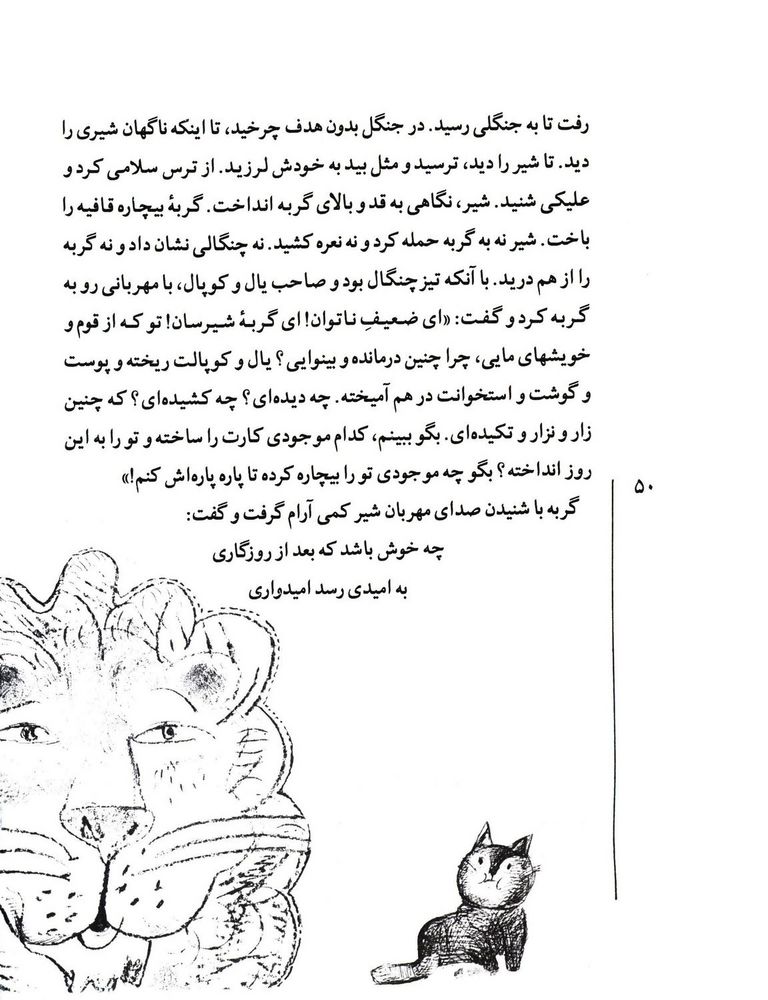 رفت تا به جنگلی رسید. در جنگل بدون هدف چرخید، تا اینکه ناگهان شیری را
دید. تا شیر را دید، ترسید و مثل بید به خودش لرزید. از ترس سلامی کرد و
علیکی شنید. شیر، نگاهی به قد و بالای گربه انداخت. گربهٔ بیچاره قافیه را
باخت. شیر نه به گربه حمله کرد و نه نعره کشید. نه چنگالی نشان داد و نه گربه
را از هم درید. با آنکه تیزچنگال بود و صاحب یال و کوپال، با مهربانی رو به
گربه کرد و گفت: «ای ضعیفِ ناتوان! ای گربهٔ شیرسان! تو که از قوم و
خویشهای مایی، چرا چنین درمانده و بینوایی؟ یال و کوپالت ریخته و پوست
و گوشت و استخوانت در هم آمیخته. چه دیده‌ای؟ چه کشیده‌ای؟ که چنین
زار و نزار و تکیده‌ای. بگو ببینم، کدام موجودی کارت را ساخته و تو را به این
روز انداخته؟ بگو چه موجودی تو را بیچاره کرده تا پاره پاره‌اش کنم!»
۵۰
گربه با شنیدن صدای مهربان شیر کمی آرام گرفت و گفت:
چه خوش باشد که بعد از روزگاری
به امیدی رسد امیدواری